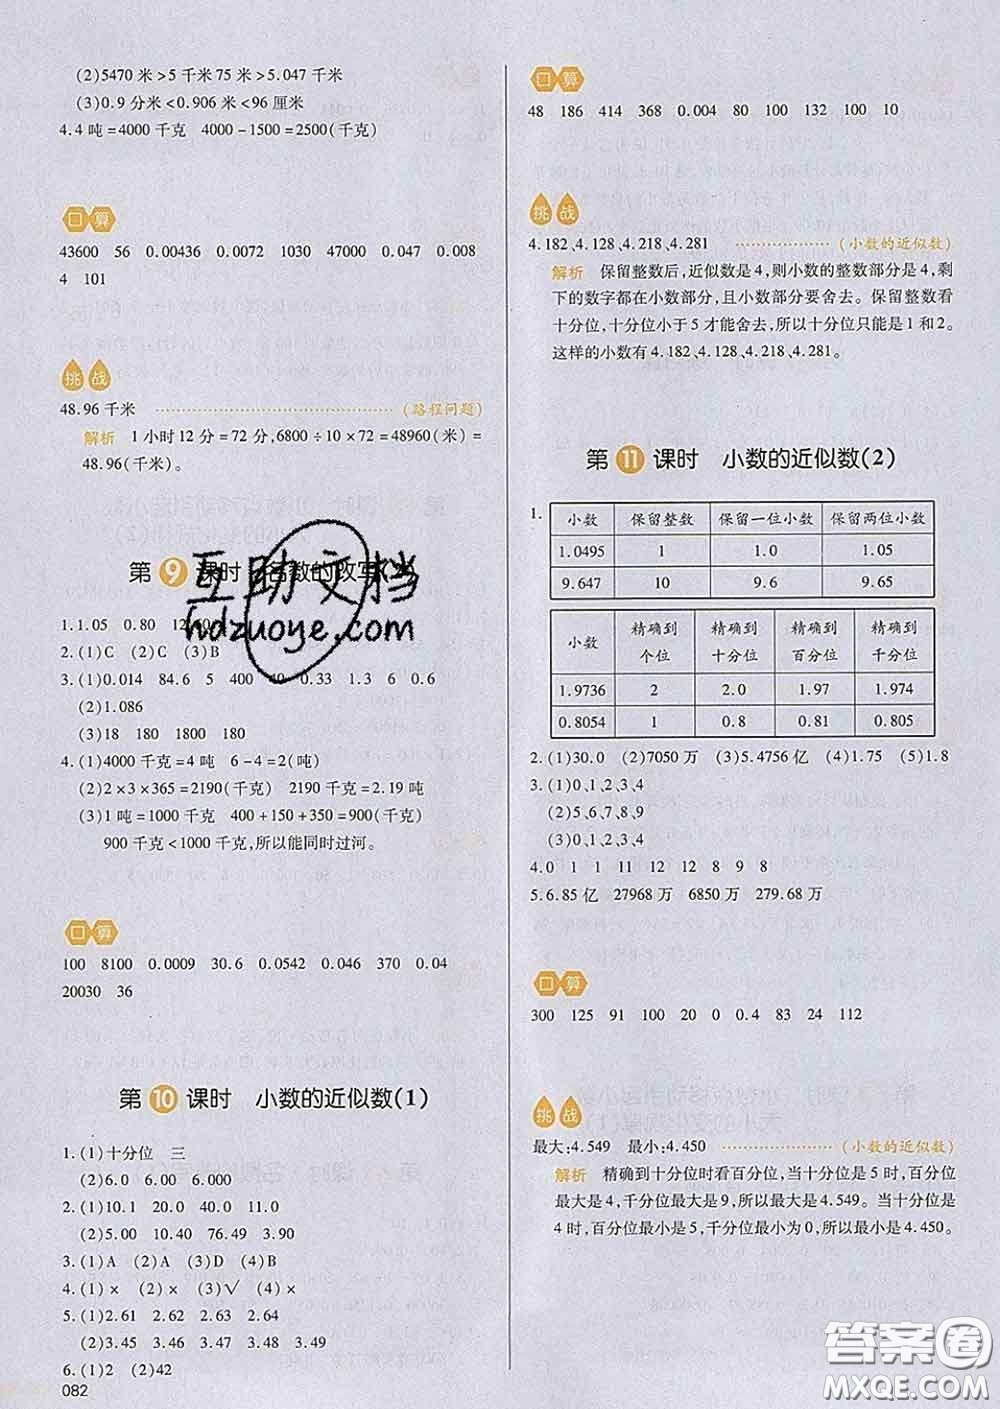 (2)5470 米>5 千米 75 米>5.047 千米
(3)0.9 分米<0.906 米<96 厘米
4.4 吨=4000 千克 4000-1500=2500(千克)
口算
43600 56 0.00436 0.0072 1030 47000 0.047 0.008
4 101
挑战
48.96 千米 (路程问题)
解析 1 小时 12 分=72 分,6800÷10×72=48960(米)=
48.96(千米)。
第9课时 名数的改写(2)
1.1.05 0.80
2.(1)C (2)C (3)B
3.(1)0.014 84.6 5 400 0.33 1.3 6 0.6
(2)1.086
(3)18 180 1800 180
4.(1)4000 千克=4 吨 6-4=2(吨)
(2)2×3×365=2190(千克) 2190 千克=2.19 吨
(3)1 吨=1000 千克 400+150+350=900(千克)
900 千克<1000 千克,所以能同时过河。
口算
100 8100 0.0009 30.6 0.0542 0.046 370 0.04
20030 36
第10课时 小数的近似数(1)
1.(1)十分位 三
(2)6.0 6.00 6.000
2.(1)10.1 20.0 40.0 11.0
(2)5.00 10.40 76.49 3.90
3.(1)A (2)A (3)D (4)B
4.(1)× (2)× (3)√ (4)×
5.(1)2.61 2.62 2.63 2.64
(2)3.45 3.46 3.47 3.48 3.49
6.(1)2 (2)42
082
口算
48 186 414 368 0.004 80 100 132 100 10
挑战
4.182、4.128、4.218、4.281 (小数的近似数)
解析 保留整数后,近似数是 4,则小数的整数部分是 4,剩
下的数字都在小数部分,且小数部分要舍去。保留整数看
十分位,十分位小于 5 才能舍去,所以十分位只能是 1 和 2。
这样的小数有 4.182、4.128、4.218、4.281。
第11课时 小数的近似数(2)
1.
小数 保留整数 保留一位小数 保留两位小数
1.0495 1 1.0 1.05
9.647 10 9.6 9.65
小数 精确到个位 精确到十分位 精确到百分位 精确到千分位
1.9736 2 2.0 1.97 1.974
0.8054 1 0.8 0.81 0.805
2.(1)30.0 (2)7050 万 (3)5.4756 亿 (4)1.75 (5)1.8
3.(1)0、1、2、3、4
(2)5、6、7、8、9
(3)0、1、2、3、4
4.0 1 1 11 12 12 8 9 8
5.6.85 亿 27968 万 6850 万 279.68 万
口算
300 125 91 100 20 0 0.4 83 24 112
挑战
最大:4.549 最小:4.450 (小数的近似数)
解析 精确到十分位时看百分位,当十分位是 5 时,百分位
最大是 4,千分位最大是 9,所以最大是 4.549。当十分位是
4 时,百分位最小是 5,千分位最小为 0,所以最小是 4.450。
互助文档
hdzuoye.com
答案圈
MXQE.COM